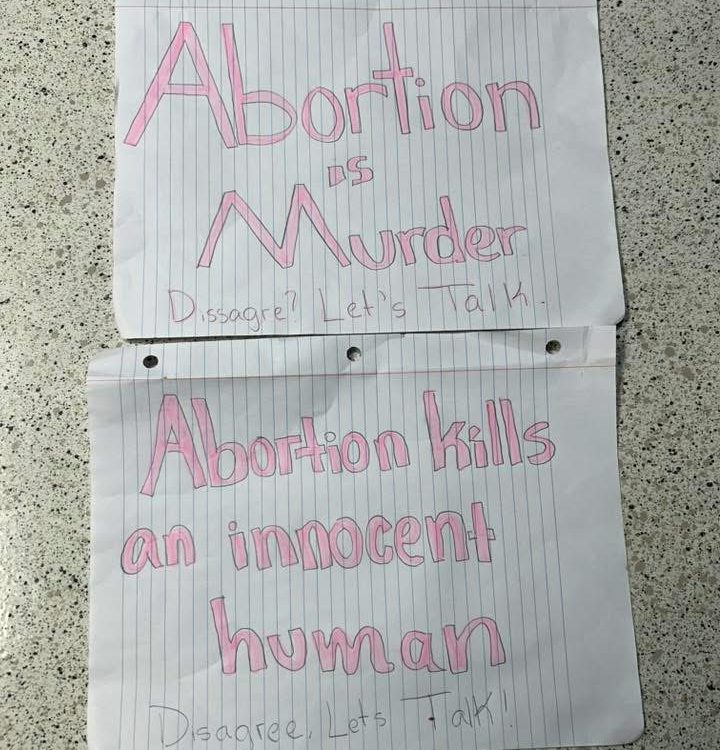 Abortion
is
Murder
Dissagre? Let's Talk.
Abortion kills
an innocent
human
Disagree, Lets Talk!